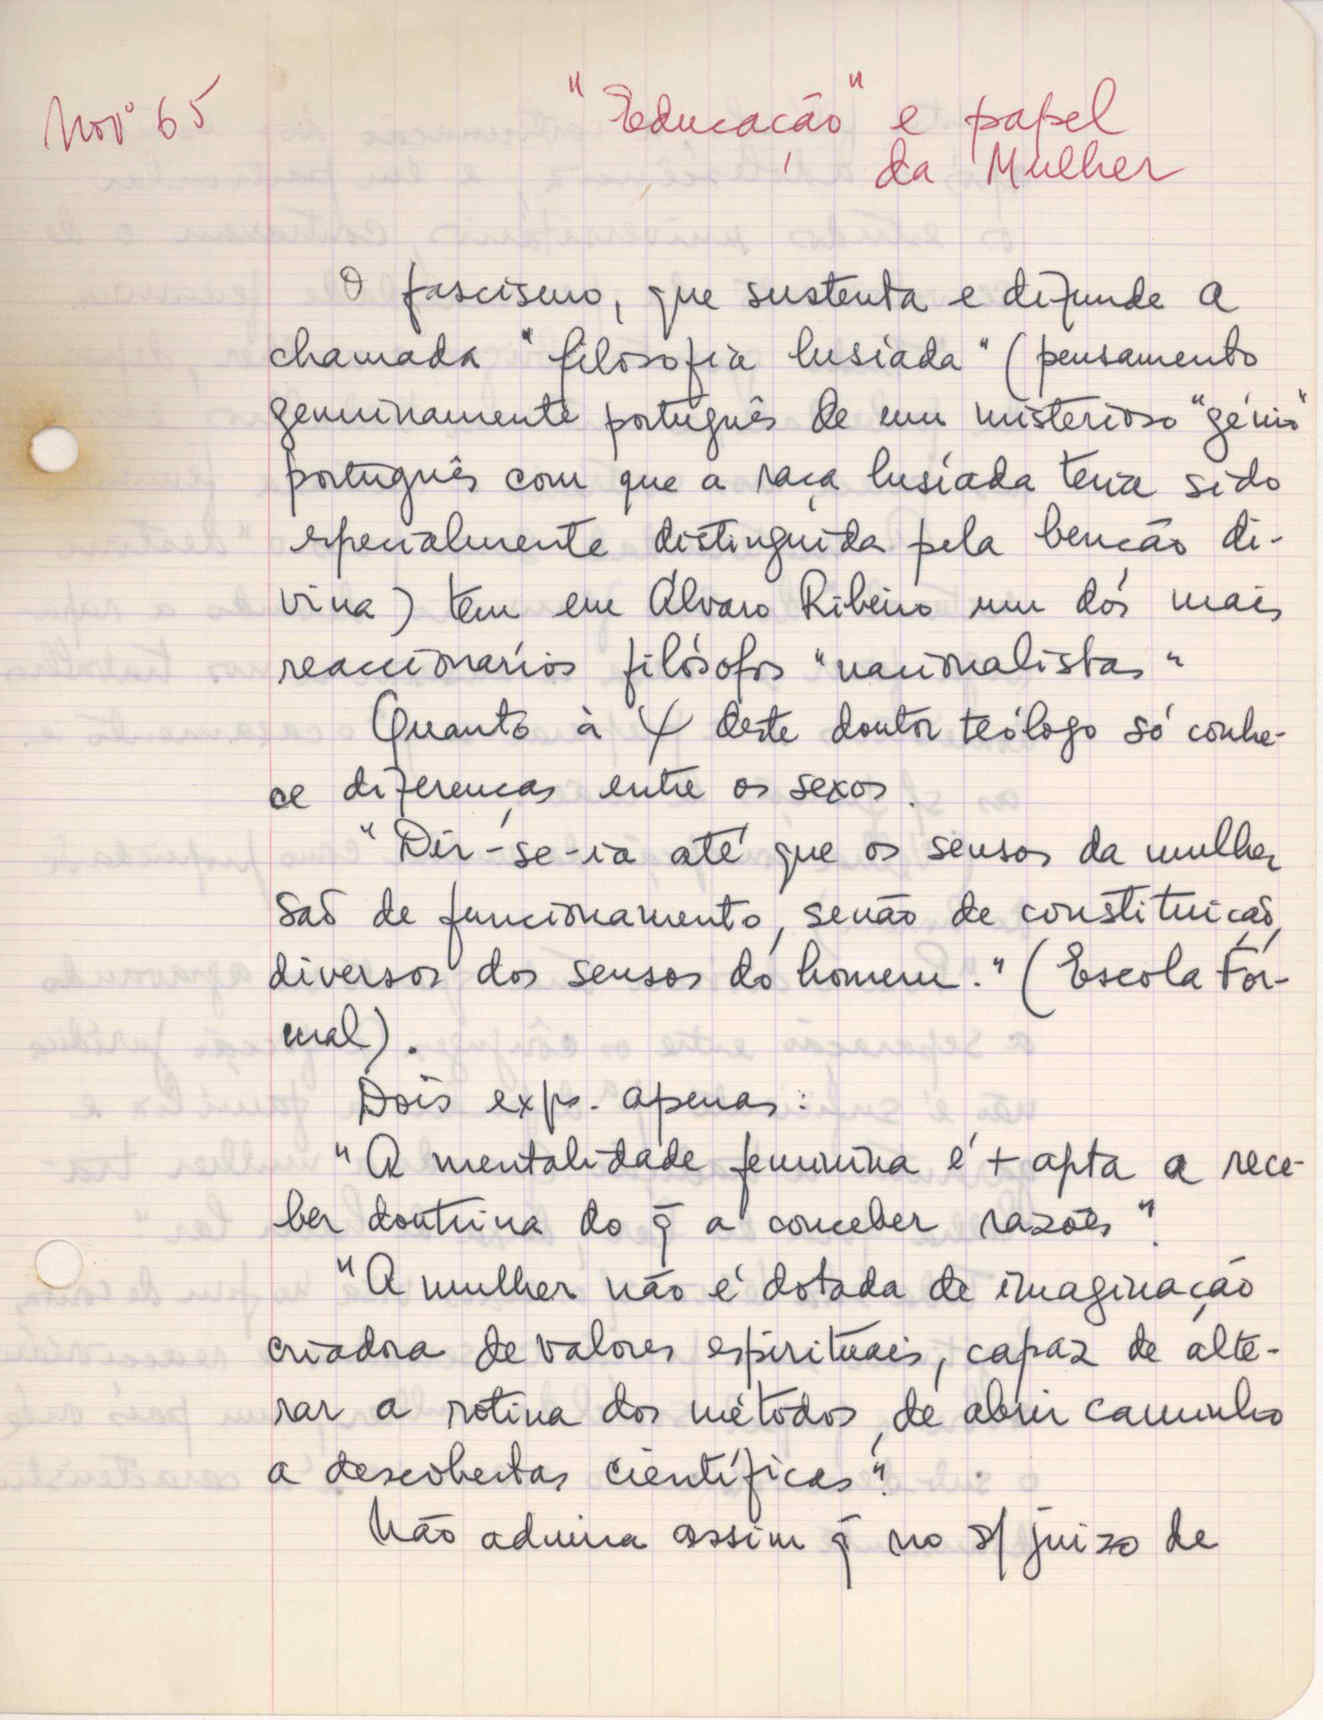 Novº 65
"Educação" e papel
da Mulher
O fascismo, que sustenta e difunde a
chamada "filosofia lusíada" (pensamento
genuinamente português de um misterioso "génio"
português com que a raça lusíada teria sido
especialmente distinguida pela benção di-
vina) tem em Álvaro Ribeiro um dos mais
reaccionários filósofos "nacionalistas"
Quanto à ψ deste doutor teólogo só conhe-
ce diferenças entre os sexos.
"Dir-se-ia até que os sensos da mulher
são de funcionamento, senão de constituição,
diversos dos sensos do homem." (Escola For-
mal).
Dois exps. apenas:
"A mentalidade feminina é + apta a rece-
ber doutrina do q̄ a conceber razões".
"A mulher não é dotada de imaginação
criadora de valores espirituais, capaz de alte-
rar a rotina dos métodos, de abrir caminho
a descobertas científicas".
Não admira assim q̄ no s/ juizo de